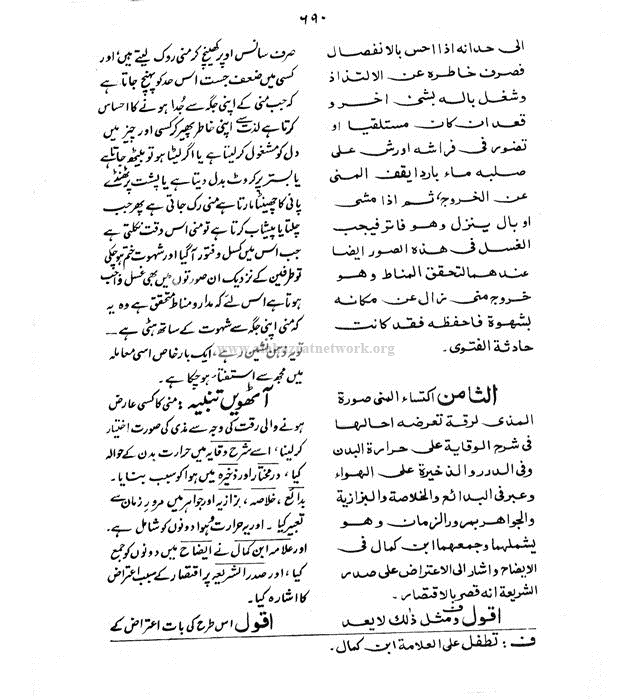 ٦٩٠
الى حدانه اذا احس بالانفصال
فصرف خاطره عن الالتذاذ
وشغل باله بشئ اخر و
قعد ان كان مستلقيا او
تضور فى فراشه اورش على
صلبه ماء باردا يقف المنى
عن الخروج ثم اذا مشى
او بال ينزل وهو فاتر فيجب
الغسل فى هذه الصور ايضا
عندهما لتحقق المناط وهو
خروج منى نزال عن مكانه
بشهوة فاحفظه فقد كانت
حادثة الفتوى۔
الثامن اكتساء المنى صورة
المذى لرقة تعرضه احالها
فى شرح الوقاية على حرارة البدن
وفى الدرر والذخيرة على الهواء
وعبر فى البدائع والخلاصة والبزازية
والجواهر بمرور الزمان وهو
يشملهما وجمعهما ابن كمال فى
الايضاح واشار الى الاعتراض على صدر
الشريعة انه قصر بالاقتصار۔
اقول ف ومثل ذلك لا يعد
صرف سانس اوپر کھینچ کر منی روک لیتے ہیں، اور
کسی میں ضعف جست اس حد کو پہنچ جاتا ہے
کہ جب منی کے اپنی جگہ سے جُدا ہونے کا احساس
کرتا ہے لذت سے اپنی خاطر پھیر کر کسی اور چیز میں
دل کو مشغول کرلیتا ہے یا اگر لیٹا ہو تو بیٹھ جاتا ہے
یا بستر پر کروٹ بدل دیتا ہے یا پشت پر ٹھنڈے
پانی کا چھینٹا مارتا ہے منی رک جاتی ہے پھر جب
چلتا یا پیشاب کرتا ہے تو منی اس وقت نکلتی ہے
جب اس میں کسل و فتور آگیا اور شہوت ختم ہوچکی
تو طرفین کے نزدیک ان صورتوں میں بھی غسل واجب
ہوتا ہے اس لئے کہ مدار و مناط متحقق ہے وہ یہ
کہ منی اپنی جگہ سے شہوت کے ساتھ ہٹی ہے __
تو یہ ذہن نشین رہے، ایک بار خاص اسی معاملہ
میں مجھ سے استفتاء ہوچکا ہے۔
آٹھویں تنبیہ: منی کا کسی عارض
ہونے والی رقت کی وجہ سے مذی کی صورت اختیار
کرلینا، اسے شرح وقایہ میں حرارت بدن کے حوالہ
کیا، درمختار اور ذخیرہ میں ہوا کو سبب بنایا۔
بدائع، خلاصہ، بزازیہ اور جواہر میں مرورِ زمان سے
تعبیر کیا۔ اور یہ حرارت و ہوا دونوں کو شامل ہے۔
اور علامہ ابن کمال نے ایضاح میں دونوں کو جمع
کیا، اور صدر الشریعہ پر اقتصار کے سبب اعتراض
کا اشارہ کیا۔
اقول اس طرح کی بات اعتراض کے
ف : تطفل على العلامة ابن كمال۔